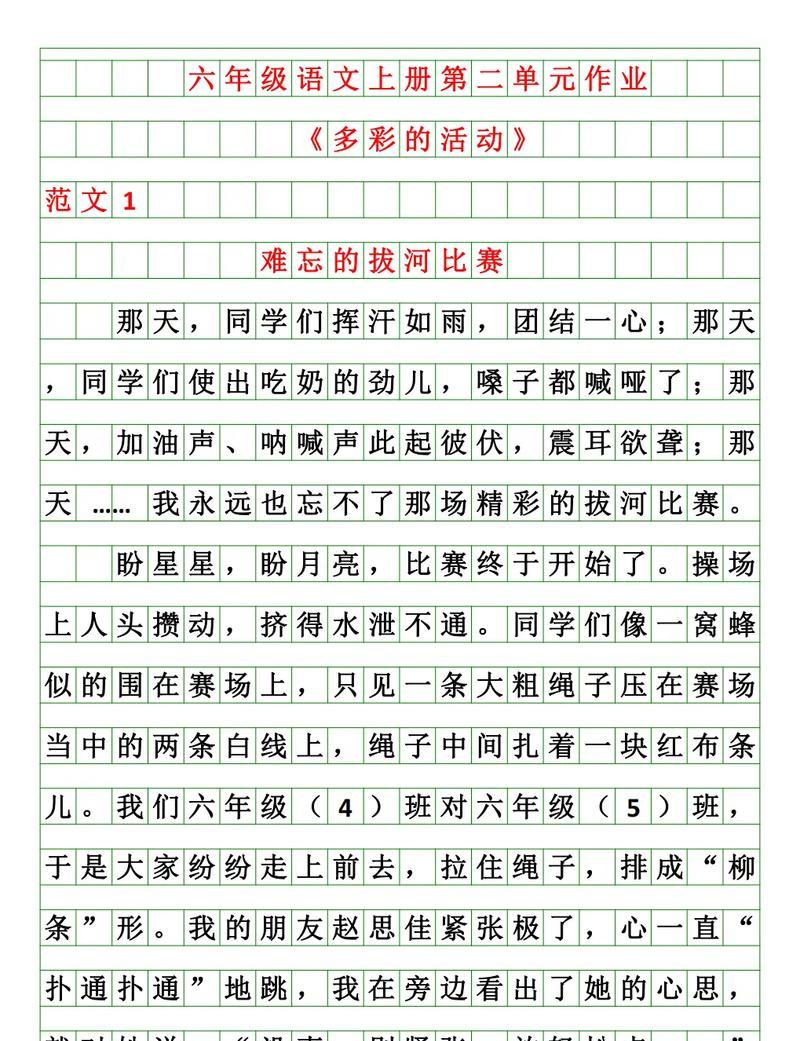 六年级语文上册第二单元作业
《多彩的活动》
范文1
难忘的拔河比赛
那天，同学们挥汗如雨，团结一心；那天
，同学们使出吃奶的劲儿，嗓子都喊哑了；那
天，加油声、呐喊声此起彼伏，震耳欲聋；那
天……我永远也忘不了那场精彩的拔河比赛。
盼星星，盼月亮，比赛终于开始了。操场
上人头攒动，挤得水泄不通。同学们像一窝蜂
似的围在赛场上，只见一条大粗绳子压在赛场
当中的两条白线上，绳子中间扎着一块红布条
儿。我们六年级（4）班对六年级（5）班，
于是大家纷纷走上前去，拉住绳子，排成“柳
条”形。我的朋友赵思佳紧张极了，心一直“
扑通扑通”地跳，我在旁边看出了她的心思，